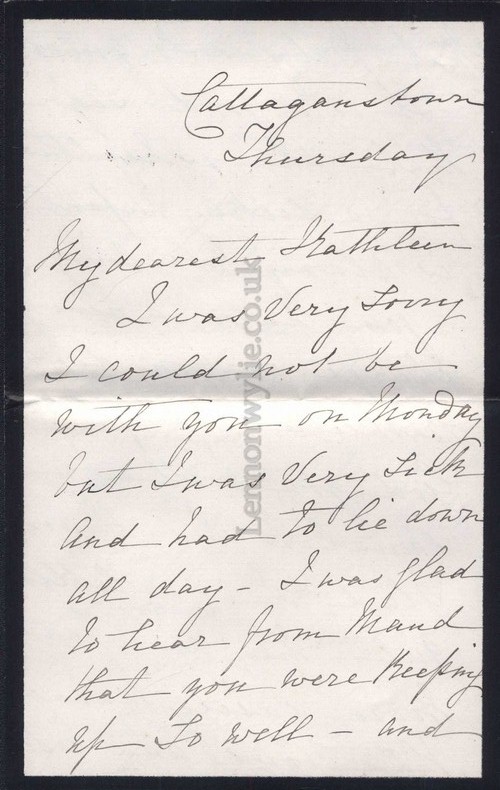 Callaganstown
Thursday
My dearest Kathleen
I was Very Sorry
I could not be
with you on Monday
but I was Very Sick
And had to lie down
all day - I was glad
to hear from Maud
that you were Keeping
up So well - and
Lemonwylie.co.uk